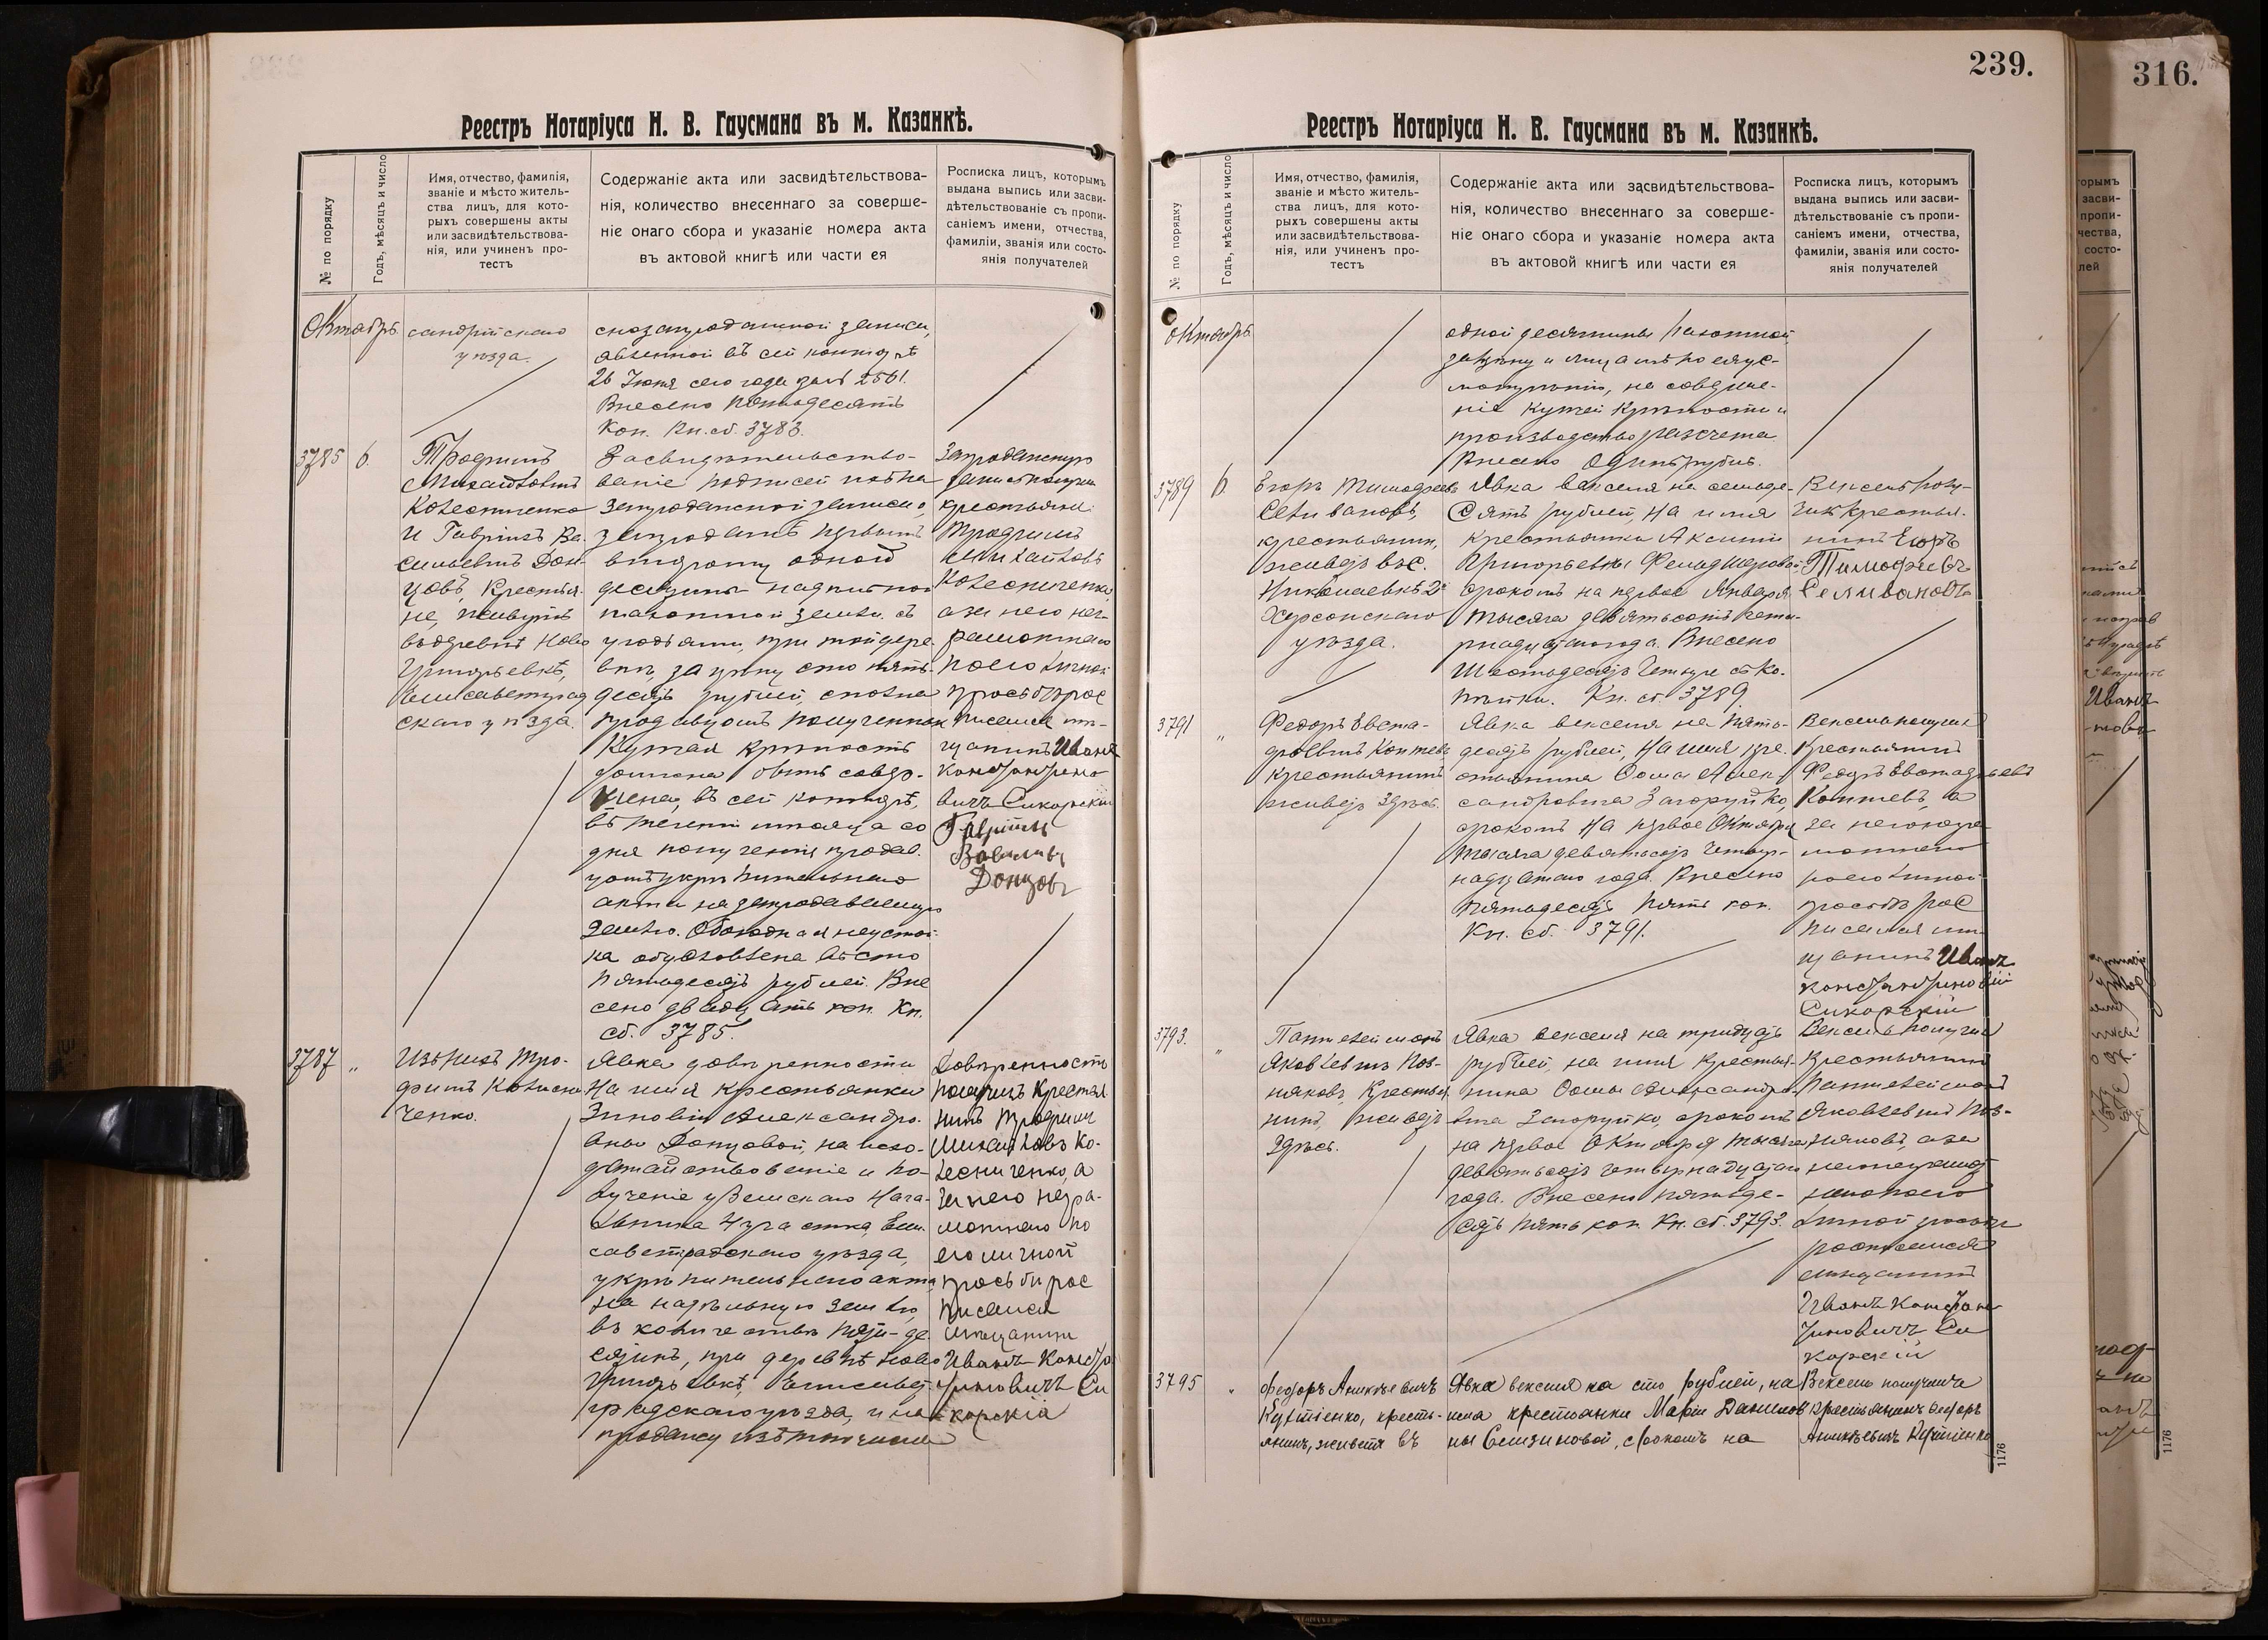 239.
316.
Реестръ Нотаріуса Н. В. Гаусмана въ м. Казанкѣ.
№ по порядку
Годъ, мѣсяцъ и число
Имя, отчество, фамилія,
званіе и мѣсто житель-
ства лицъ, для кото-
рыхъ совершены акты
или засвидѣтельствова-
нія, или учиненъ про-
тестъ
Содержаніе акта или засвидѣтельствова-
нія, количество внесеннаго за соверше-
ніе онаго сбора и указаніе номера акта
въ актовой книгѣ или части ея
Росписка лицъ, которымъ
выдана выпись или засви-
дѣтельствованіе съ пропи-
саніемъ имени, отчества,
фамиліи, званія или состо-
янія получателей
Октябрь
сандрійскаго
уѣзда.
снозапродажной записи,
явленной въ сей конторѣ
26 Іюня сего года за № 2561.
Внесено пятьдесятъ
коп. Кн. сб. 3783.
3785
6.
Трофимъ
Михайловъ
Колесниченко
и Гавріилъ Ва-
сильевичъ Дон-
цовъ, крестья-
не, живутъ
въ деревнѣ Ново
Григорьевкѣ,
Елисаветград
скаго уѣзда.
Засвидѣтельство-
ваніе подписей подъ на
запродажной записью,
запродалъ первымъ
второму одной
десятины надѣльной
пахотной земли съ
угодьями, при той дере
внѣ, за цѣну сто пять-
десятъ рублей, сполна
продавцомъ полученныхъ
Купчая крѣпость
должна быть совер-
шена, въ сей конторѣ,
въ теченіи мѣсяца со
дня полученія продав-
цомъ укрѣпительнаго
акта на запродаваемую
землю. Обоюдная неустой-
ка обусловлена въ сто
пятьдесятъ рублей. Вне
сено двадцать коп. Кн.
сб. 3785.
Запродажную
запись получилъ
крестьянинъ
Трофимъ
Михайловъ
Колесниченко,
а за него нег-
рамотнаго
по его личной
просьбѣ рос
писался мѣ-
щанинъ Иванъ
Константино
вичъ Сикорскій
Гавріилъ
Васильевъ
Донцовъ
3787
"
Изъ нихъ Тро-
фимъ Колесни
ченко.
Явка довѣренности
на имя крестьянки
Зиновіи Александро-
вны Донцовой, на исхо-
датайствованіе и по-
лученіе у Земскаго Нача-
льника 4 участка, Ели-
саветградскаго уѣзда,
укрѣпительнаго акта
на надѣльную землю,
въ количествѣ пяти де-
сятинъ, при деревнѣ Ново
Григорьевкѣ, Елисавет-
градскаго уѣзда, и на
продажу изъ того числа
Довѣренность
получилъ крестья
нинъ Трофимъ
Михайловъ Ко-
лесниченко, а
за него негра-
мотнаго по
его личной
просьбѣ рос
писался
мѣщанинъ
Иванъ Конста
нтиновичъ Си
корскій
Реестръ Нотаріуса Н. В. Гаусмана въ м. Казанкѣ.
№ по порядку
Годъ, мѣсяцъ и число
Имя, отчество, фамилія,
званіе и мѣсто житель-
ства лицъ, для кото-
рыхъ совершены акты
или засвидѣтельствова-
нія, или учиненъ про-
тестъ
Содержаніе акта или засвидѣтельствова-
нія, количество внесеннаго за соверше-
ніе онаго сбора и указаніе номера акта
въ актовой книгѣ или части ея
Росписка лицъ, которымъ
выдана выпись или засви-
дѣтельствованіе съ пропи-
саніемъ имени, отчества,
фамиліи, званія или состо-
янія получателей
Октябрь
одной десятины пахотной
за цѣну и лицамъ по ея ус-
мотрѣнію, на соверше-
ніе купчей крѣпости и
производство разсчета
Внесено одинъ рубль.
3789
6.
Егоръ Тимофеевъ
Селивановъ,
крестьянинъ,
живетъ въ с.
Николаевкѣ 2й
Херсонскаго
уѣзда.
Явка векселя на семьде-
сятъ рублей, на имя
крестьянки Аксиніи
Григорьевны
срокомъ на первое Января
тысяча девятьсотъ четы-
рнадцатаго года. Внесено
шестьдесятъ четыре съ ко-
пѣйки. Кн. сб. 3789.
Вексель полу-
чилъ крестья-
нинъ Егоръ
Тимофеевъ
Селивановъ
3791
"
Федоръ Евста-
фьевичъ Коптевъ
крестьянинъ
живетъ здѣсь.
Явка векселя на пять-
десятъ рублей, на имя кре-
стьянина Ѳомы Алек-
сандровича Загоруйко,
срокомъ на первое Октября
тысяча девятьсотъ четыр-
надцатаго года. Внесено
пятьдесятъ пять коп.
Кн. сб. 3791.
Вексель получилъ
крестьянинъ
Федоръ Евстафьевъ
Коптевъ, а
за него негра-
мотнаго
по его личной
просьбѣ рос
писался мѣ-
щанинъ Иванъ
Константиновичъ
Сикорскій
3793.
"
Пантелеймонъ
Яковлевичъ Поз-
няковъ, крестья
нинъ, живетъ
здѣсь.
Явка векселя на тридцать
рублей, на имя крестья-
нина Ѳомы Александро-
вича Загоруйко, срокомъ
на первое Октября тысяча
девятьсотъ четырнадцатаго
года. Внесено пятьде-
сятъ пять коп. Кн. сб. 3793.
Вексель получилъ
крестьянинъ
Пантелеймонъ
Яковлевичъ Поз-
няковъ, а за
него неграмот
наго по его
личной просьбѣ
росписался
мѣщанинъ
Иванъ Констан
тиновичъ Си
корскій
3795
"
Федоръ Аникѣевичъ
крестья-
янинъ, живетъ въ
Явка векселя на сто рублей, на
имя крестьянки Маріи Данилов
ны Селезиновой, срокомъ на
Вексель получилъ
крестьянинъ Федоръ
Аникѣевичъ
1176
1176